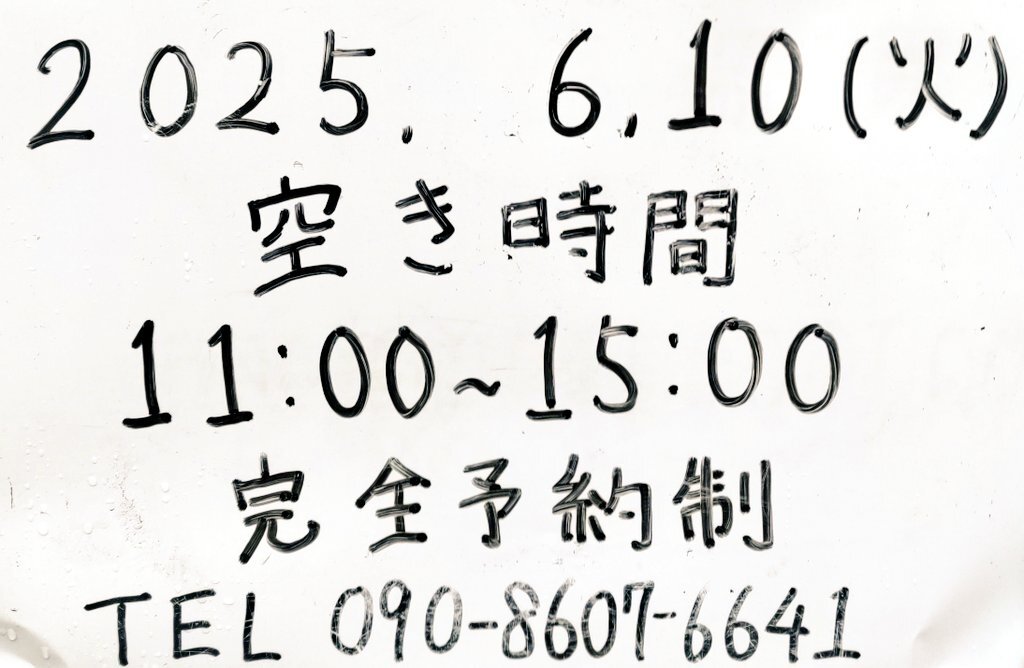 2025. 6.10(火)
空き時間
11:00~15:00
完全予約制
TEL 090-8607-6641